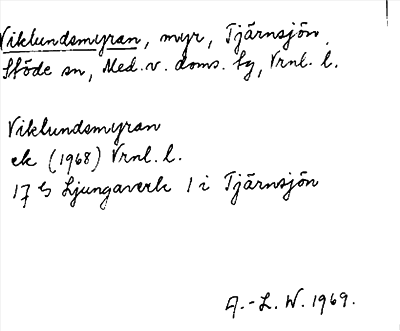 Viklundsmyran, myr, Tjärnsjön,
Stöde sn, Med. v. doms. tg, Vrnl. l.
Viklundsmyran
ek (1968) Vrnl. l.
17 G Ljungaverk 1 i Tjärnsjön
A.-L. W. 1969.